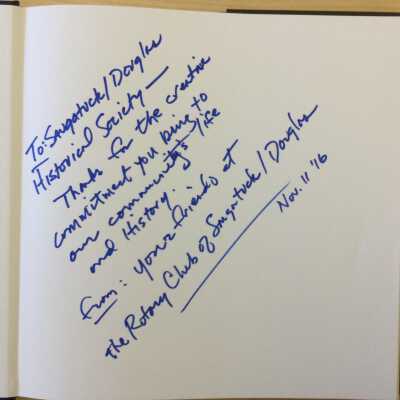 To: Saugatuck/Douglas
Historical Society —
Thanks for the creative
commitment you bring to
our community's life
and History.
From: Your friends at
The Rotary Club of Saugatuck/Douglas
Nov. 11 '16